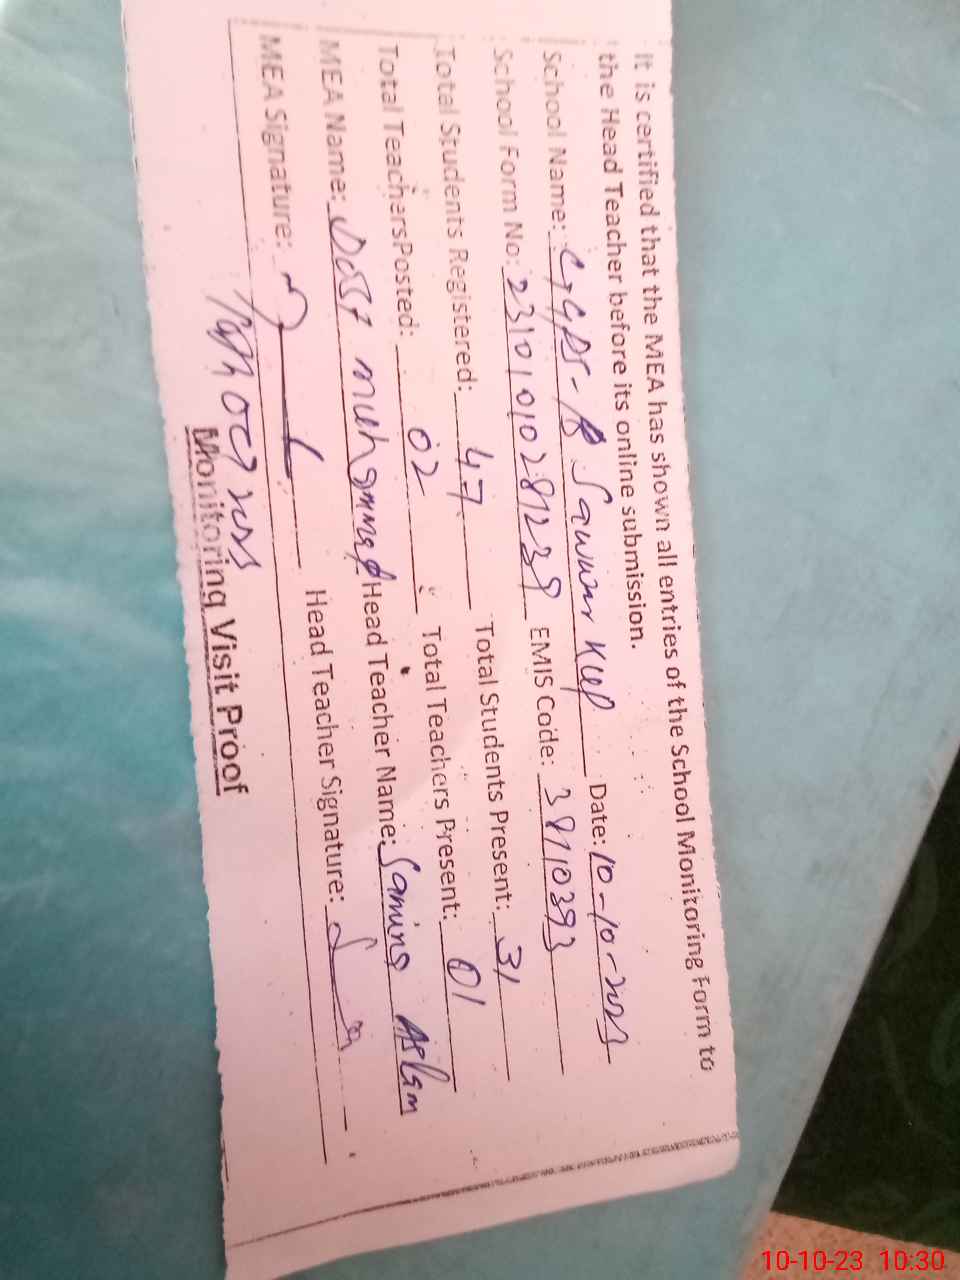 It is certified that the MEA has shown all entries of the School Monitoring Form to
the Head Teacher before its online submission.
School Name: GGPS - Sawan Date: 10-10-2023
School Form No: 23101010281239 EMIS Code: 38110393
Total Students Registered: 47 Total Students Present: 31
Total Teachers Posted: 02 Total Teachers Present: 01
MEA Name: Dost Muhammad Head Teacher Name: Samina Aslam
MEA Signature: Head Teacher Signature:
10th Oct 2023
Monitoring Visit Proof
10-10-23 10:30